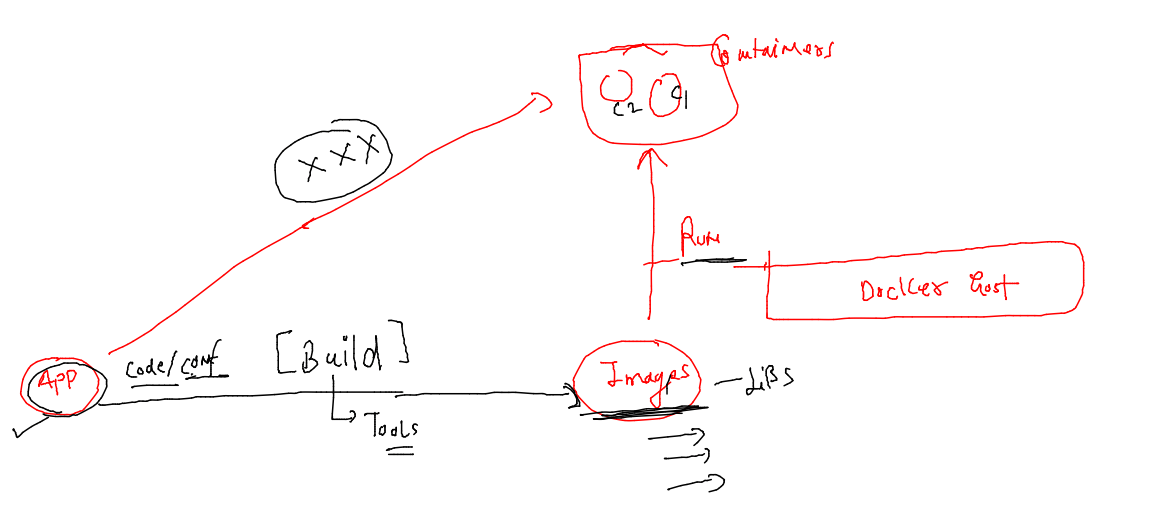 Containers
C2 C1
XXX
Run
Docker host
App
code/conf
[Build]
Images
LiBS
Tools